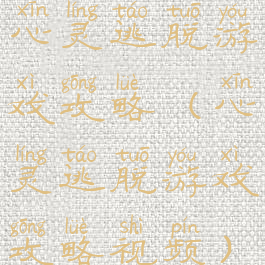 xīn líng táo tuō yóu
心灵逃脱游
xì gōng lüè xīn
戏攻略（心
líng táo tuō yóu xì
灵逃脱游戏
gōng lüè shì pín
攻略视频）